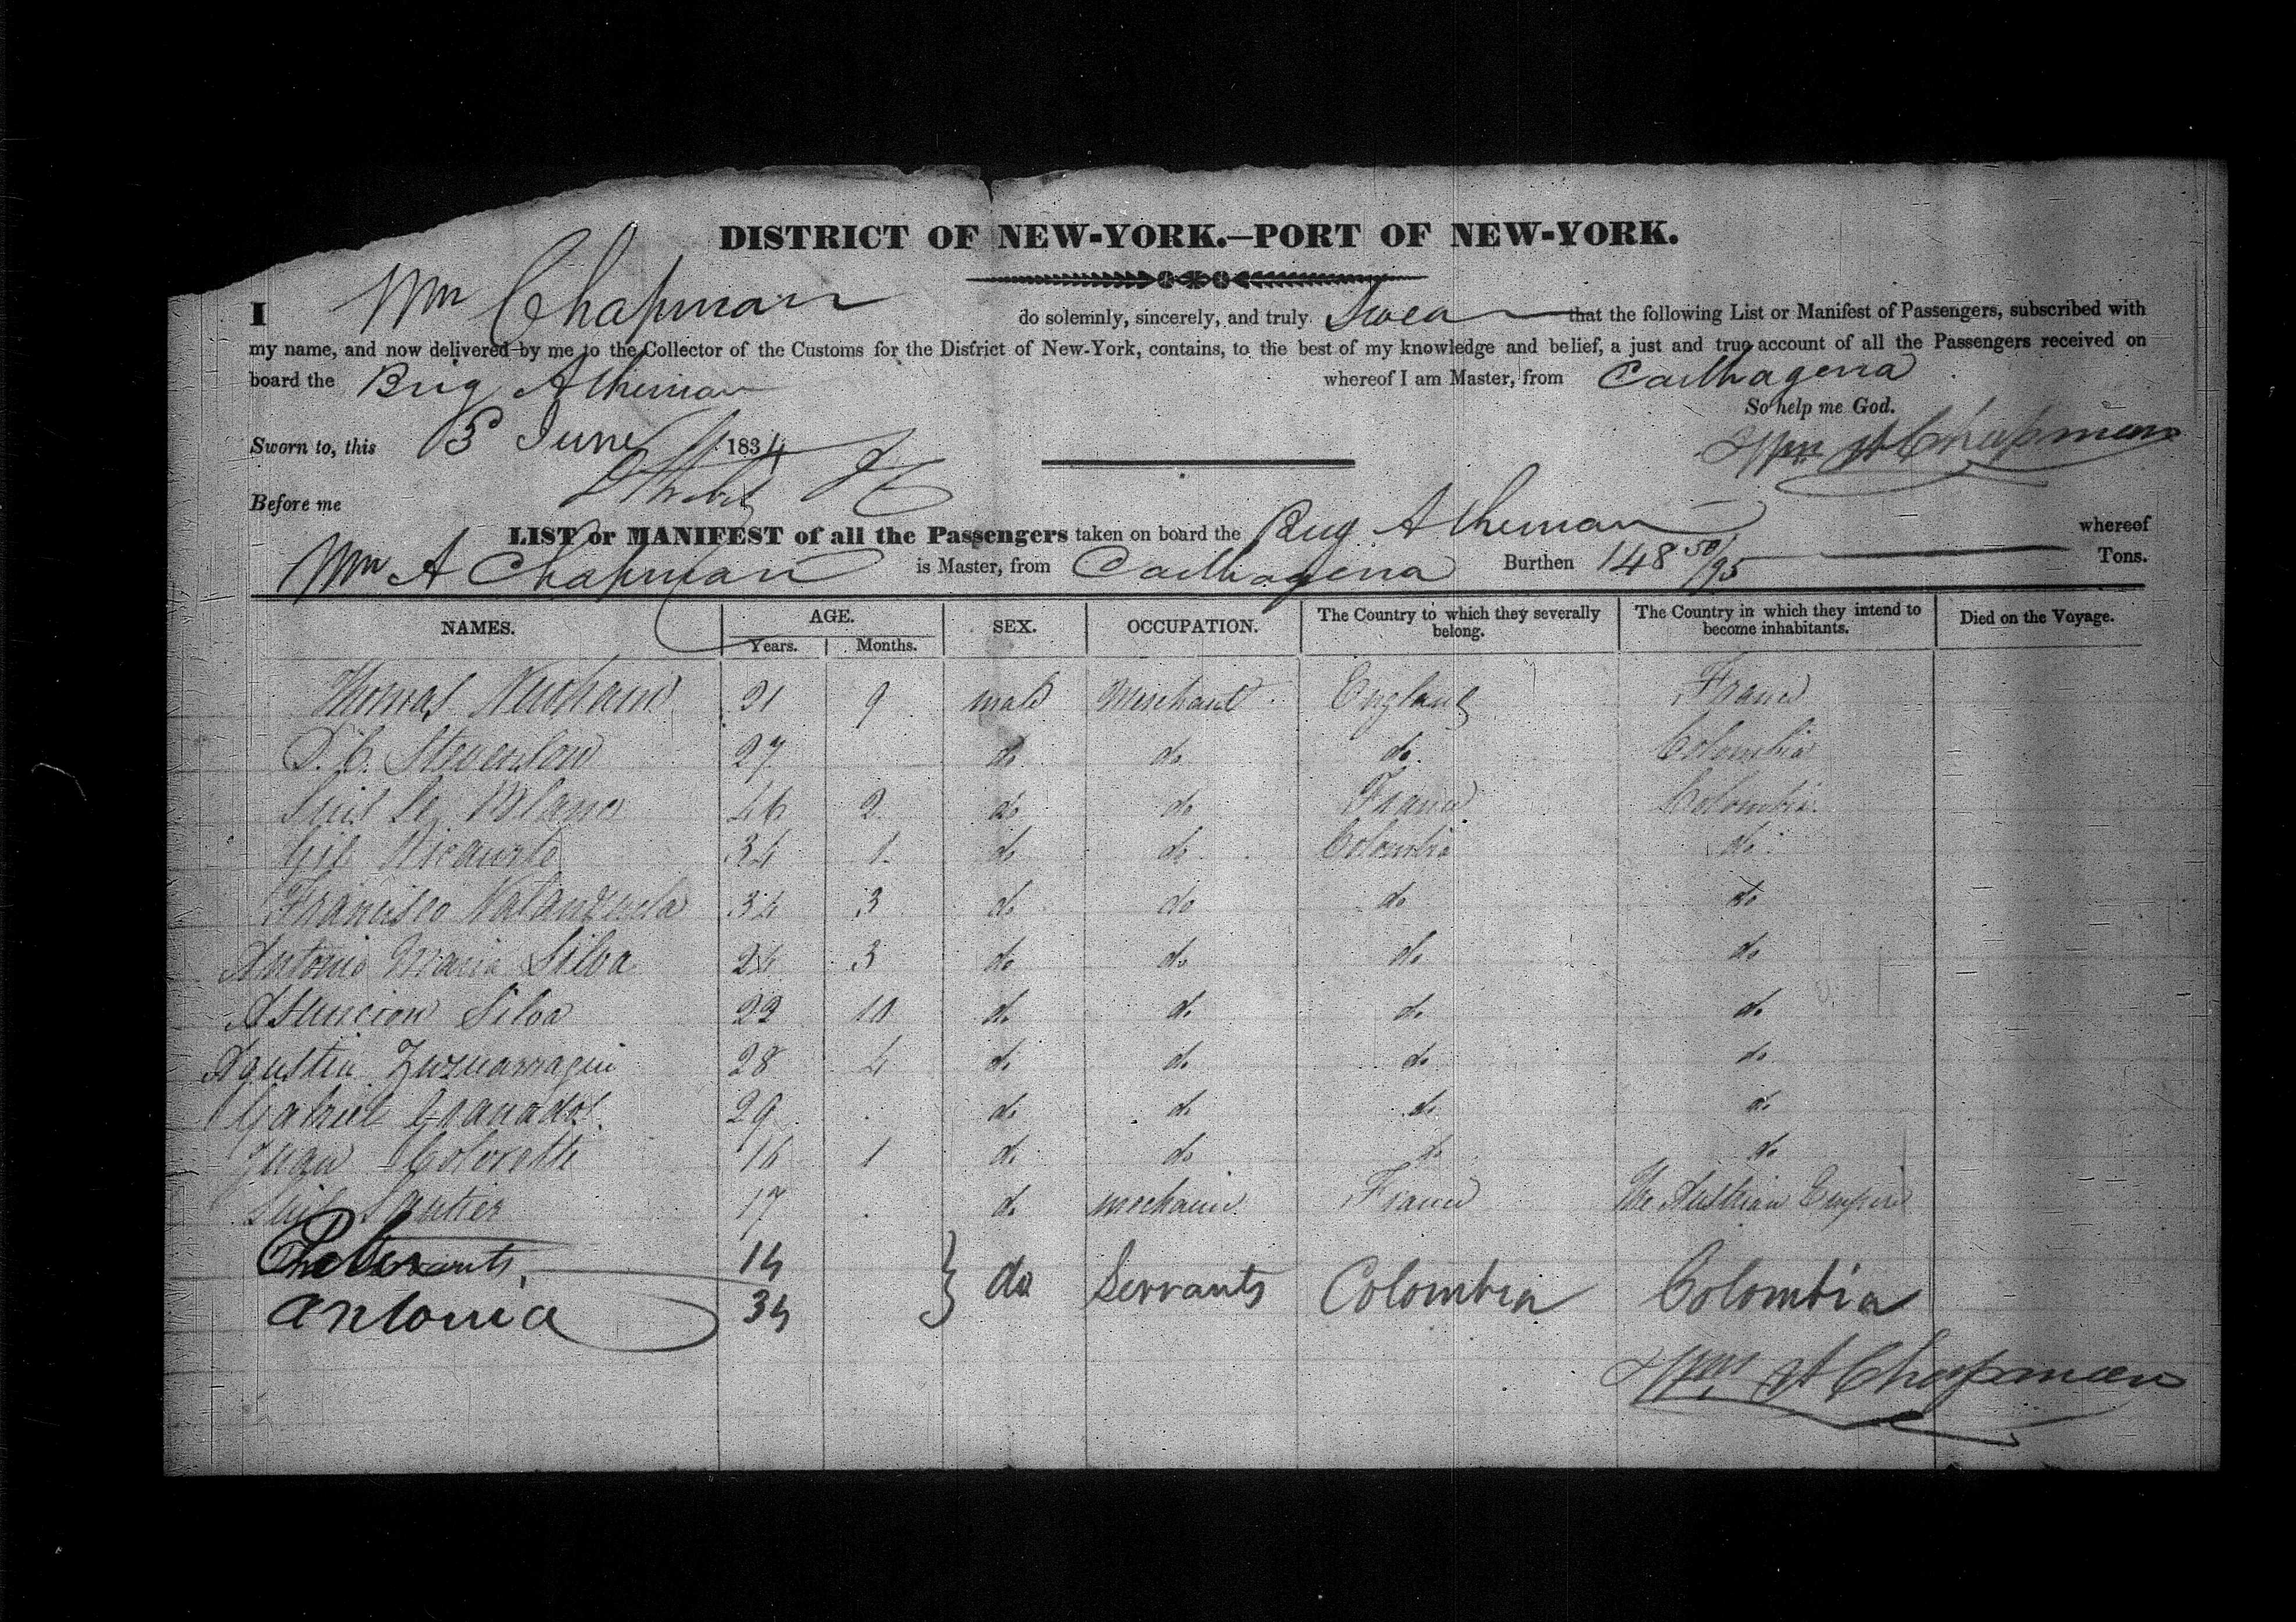 DISTRICT OF NEW-YORK.—PORT OF NEW-YORK.
I Wm Chapman do solemnly, sincerely, and truly Swear that the following List or Manifest of Passengers, subscribed with
my name, and now delivered by me to the Collector of the Customs for the District of New-York, contains, to the best of my knowledge and belief, a just and true account of all the Passengers received on
board the Brig Athenian whereof I am Master, from Carthagena
So help me God.
Sworn to, this 5 June 1834 Wm A Chapman
Before me
LIST or MANIFEST of all the Passengers taken on board the Brig Athenian whereof
Wm A Chapman is Master, from Carthagena Burthen 148 50/95 Tons.
NAMES. AGE. SEX. OCCUPATION. The Country to which they severally belong. The Country in which they intend to become inhabitants. Died on the Voyage.
Years. Months.
Thomas 21 9 male Merchant England France
S. C. Stevenson 27 do do do Colombia
Luis Le Blanc 46 2 do do France Colombia
Gil Ricaurte 34 1 do do Colombia do
Francisco Valanzuela 34 3 do do do do
Antonio Maria Silva 24 3 do do do do
Asuncion Silva 22 10 do do do do
Agustin 28 4 do do do do
Gabriel Granados. 29 do do do do
Juan 16 1 do do do do
Luis Sautier 17 do mechanic France The Austrian Empire
14
Antonia 34 } do Servants Colombia Colombia
Wm A Chapman